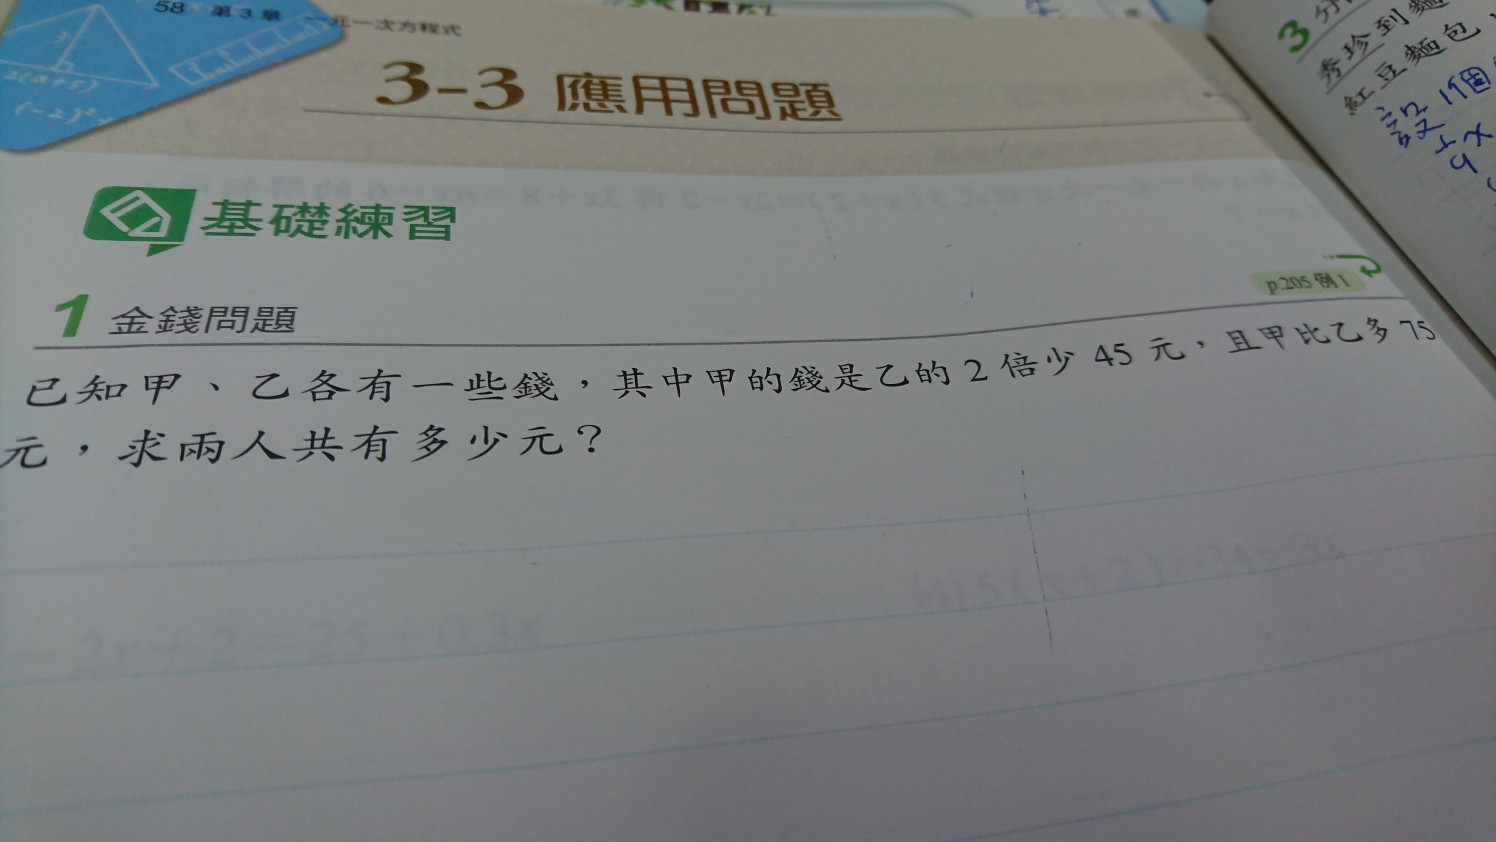 58 第3章 一元一次方程式
3-3 應用問題
基礎練習
1 金錢問題
p.205 例1
已知甲、乙各有一些錢，其中甲的錢是乙的 2 倍少 45 元，且甲比乙多 75
元，求兩人共有多少元？
2(a+5)
(-2)²
3 分
秀珍到麵
紅豆麵包，
設